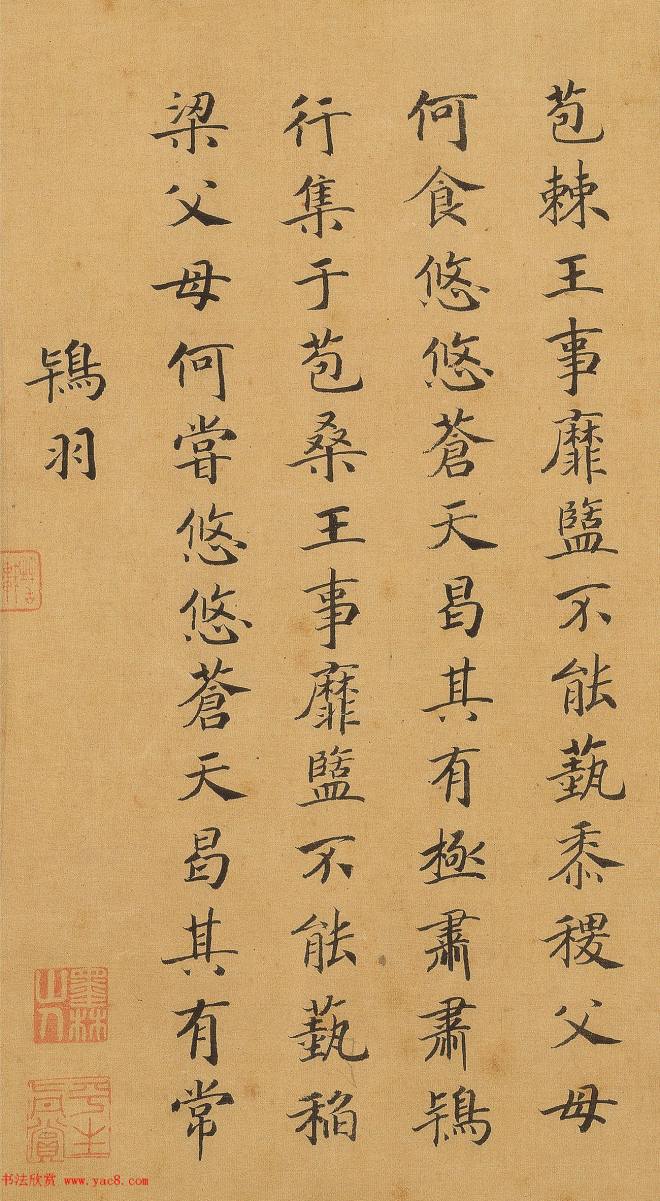 苞棘王事靡盬不能蓺黍稷父母
何食悠悠蒼天曷其有極肅肅鴇
行集于苞桑王事靡盬不能蓺稻
梁父母何嘗悠悠蒼天曷其有常
鴇羽
墨林山人
平生真賞
书法欣赏 www.yac8.com